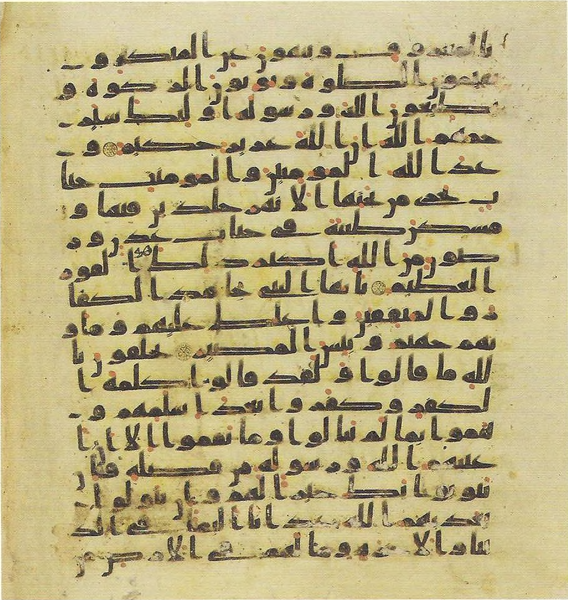 بالمعروف وينهون عن المنكر و
يقيمون الصلوة ويوتون الزكوة و
يطيعون الله ورسوله اوليك سير
حمهم الله ان الله عزيز حكيم و
عد الله المومنين والمومنت جنا
ت تجري من تحتها الانهر خلدين فيها و
مسكن طيبة في جنات عدن ور
ضون من الله اكبر ذلك هو الفوز
العظيم يايها النبي جاهد الكفا
ر والمنفقين واغلظ عليهم وماو
يهم جهنم وبيس المصير يحلفون با
لله ما قالوا ولقد قالوا كلمة ا
لكفر وكفروا بعد اسلمهم و
هموا بما لم ينالوا وما نقموا الا ان ا
غنيهم الله ورسوله من فضله فان
يتوبوا يك خيرا لهم وان يتولوا
يعذبهم الله عذابا اليما في الد
نيا والاخرة وما لهم في الارض من